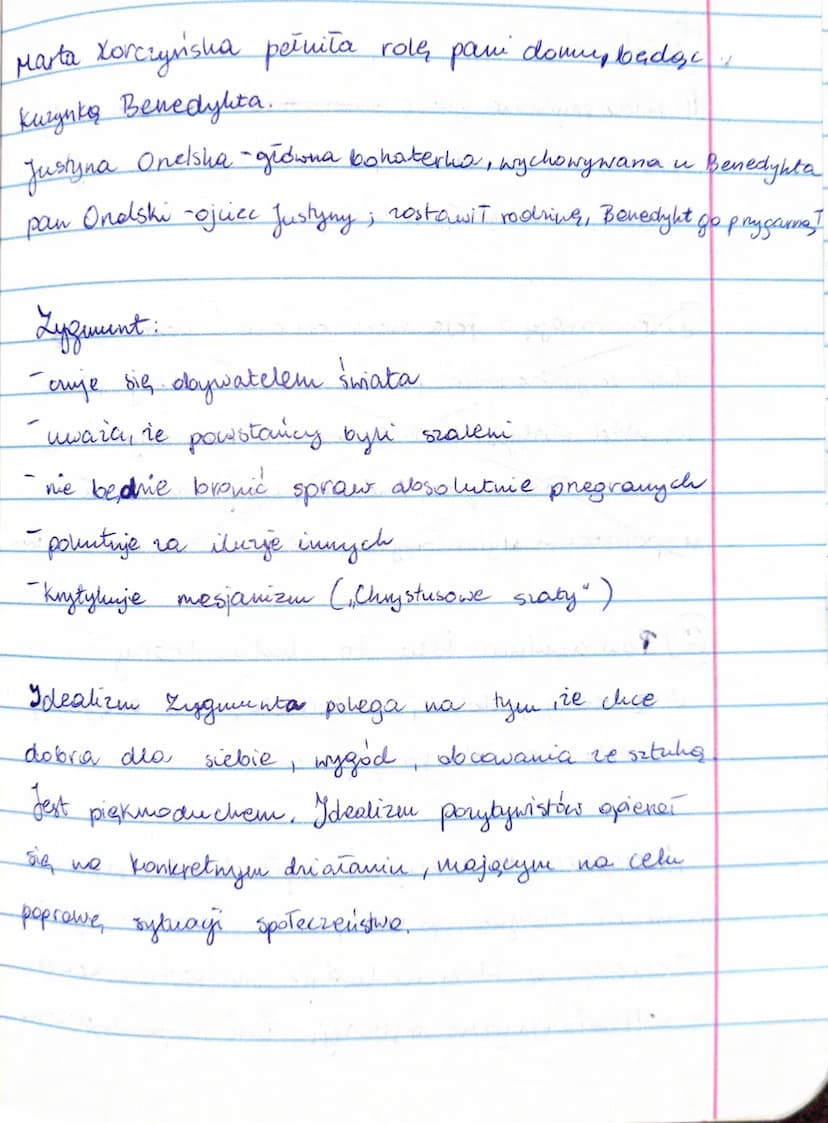 Marta Korczyńska pełniła rolę pani domu, będąc
kuzynką Benedykta.
Justyna Orzelska - główna bohaterka, wychowywana u Benedykta
pan Orzelski - ojciec Justyny; zostawił rodzinę, Benedykt go przygarnął
Zygmunt:
- czuje się obywatelem świata
- uważa, że powstańcy byli szaleni
- nie będzie bronić spraw absolutnie przegranych
- pokutuje za iluzje innych
- krytykuje mesjanizm („Chrystusowe szaty")
Idealizm Zygmunta polega na tym, że chce
dobra dla siebie, wygód, obcowania ze sztuką.
Jest pięknoduchem. Idealizm pozytywistów opierał
się na konkretnym działaniu, mającym na celu
poprawę sytuacji społeczeństwa.